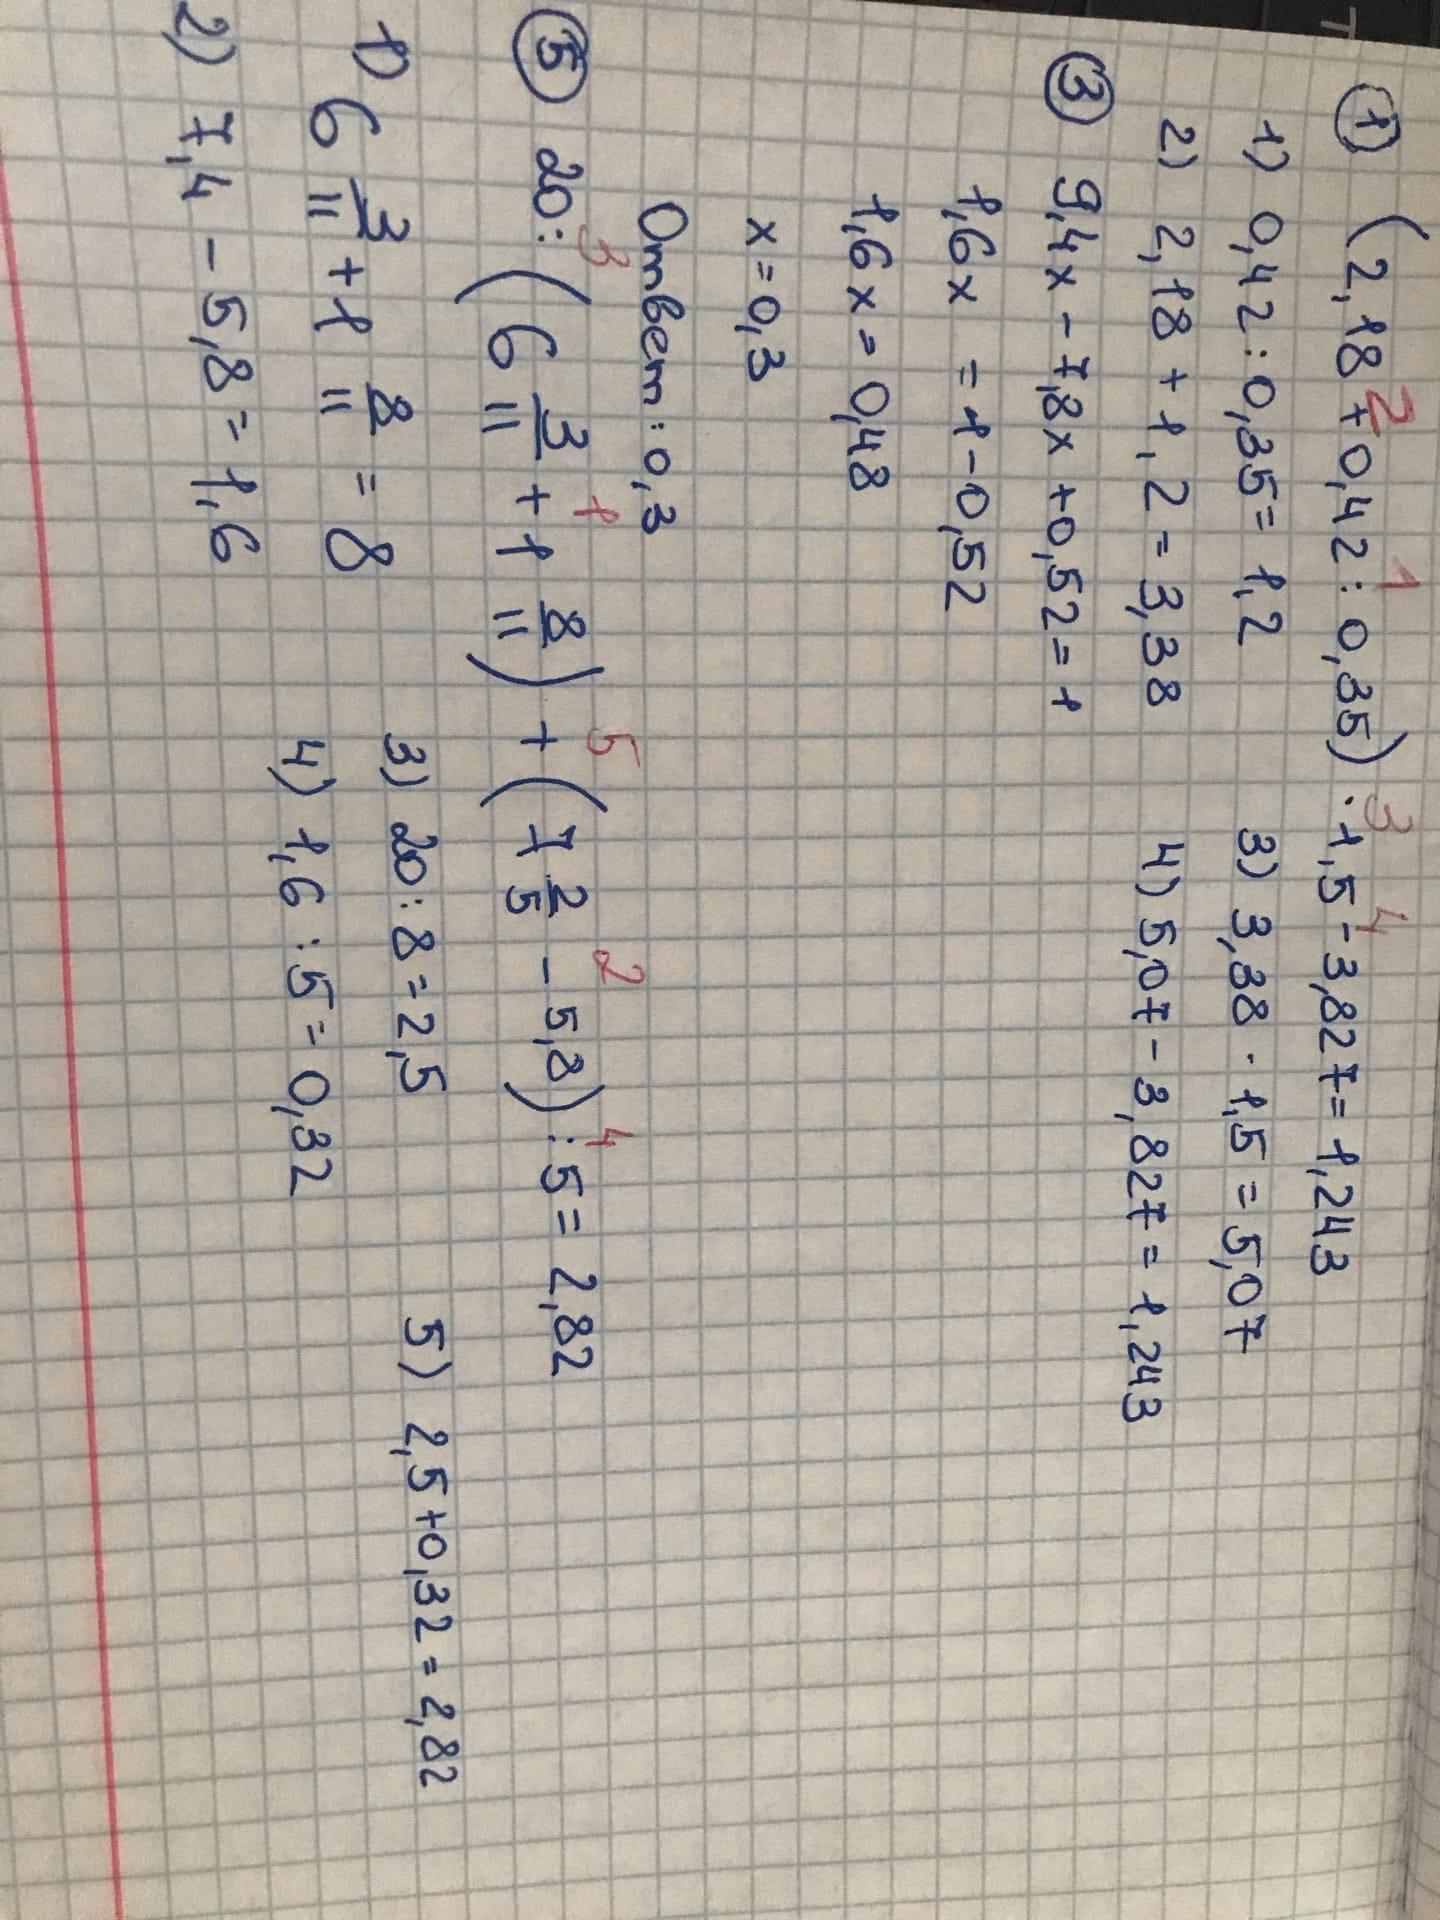 ① (2,18 + 0,42 : 0,35) · 1,5 - 3,827 = 1,243
2 1 3 4
1) 0,42 : 0,35 = 1,2
3) 3,38 · 1,5 = 5,07
2) 2,18 + 1,2 = 3,38
4) 5,07 - 3,827 = 1,243
③ 9,4x - 7,8x + 0,52 = 1
1,6x = 1 - 0,52
1,6x = 0,48
x = 0,3
Ответ: 0,3
3 1 5 2 4
⑤ 20 : (6 3/11 + 1 8/11) + (7 2/5 - 5,8) : 5 = 2,82
1) 6 3/11 + 1 8/11 = 8
3) 20 : 8 = 2,5
5) 2,5 + 0,32 = 2,82
2) 7,4 - 5,8 = 1,6
4) 1,6 : 5 = 0,32